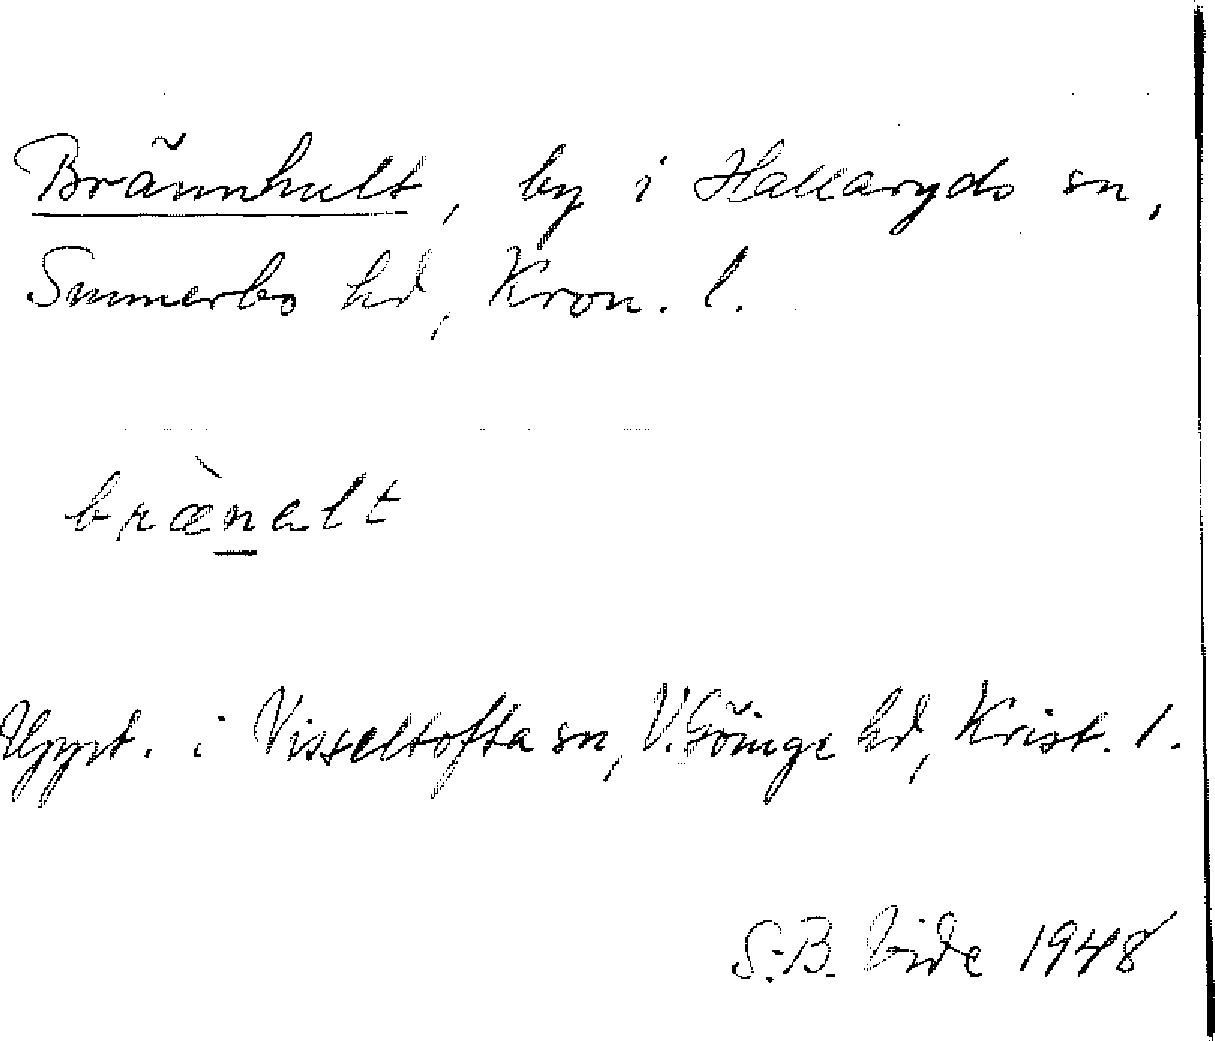 Brännhult, by i Hallaryds sn,
Sunnerbo hd, Kron. l.
brænalt
Uppt. i Visseltofta sn, V. Göinge hd, Krist. l.
S.-B. Vide 1948